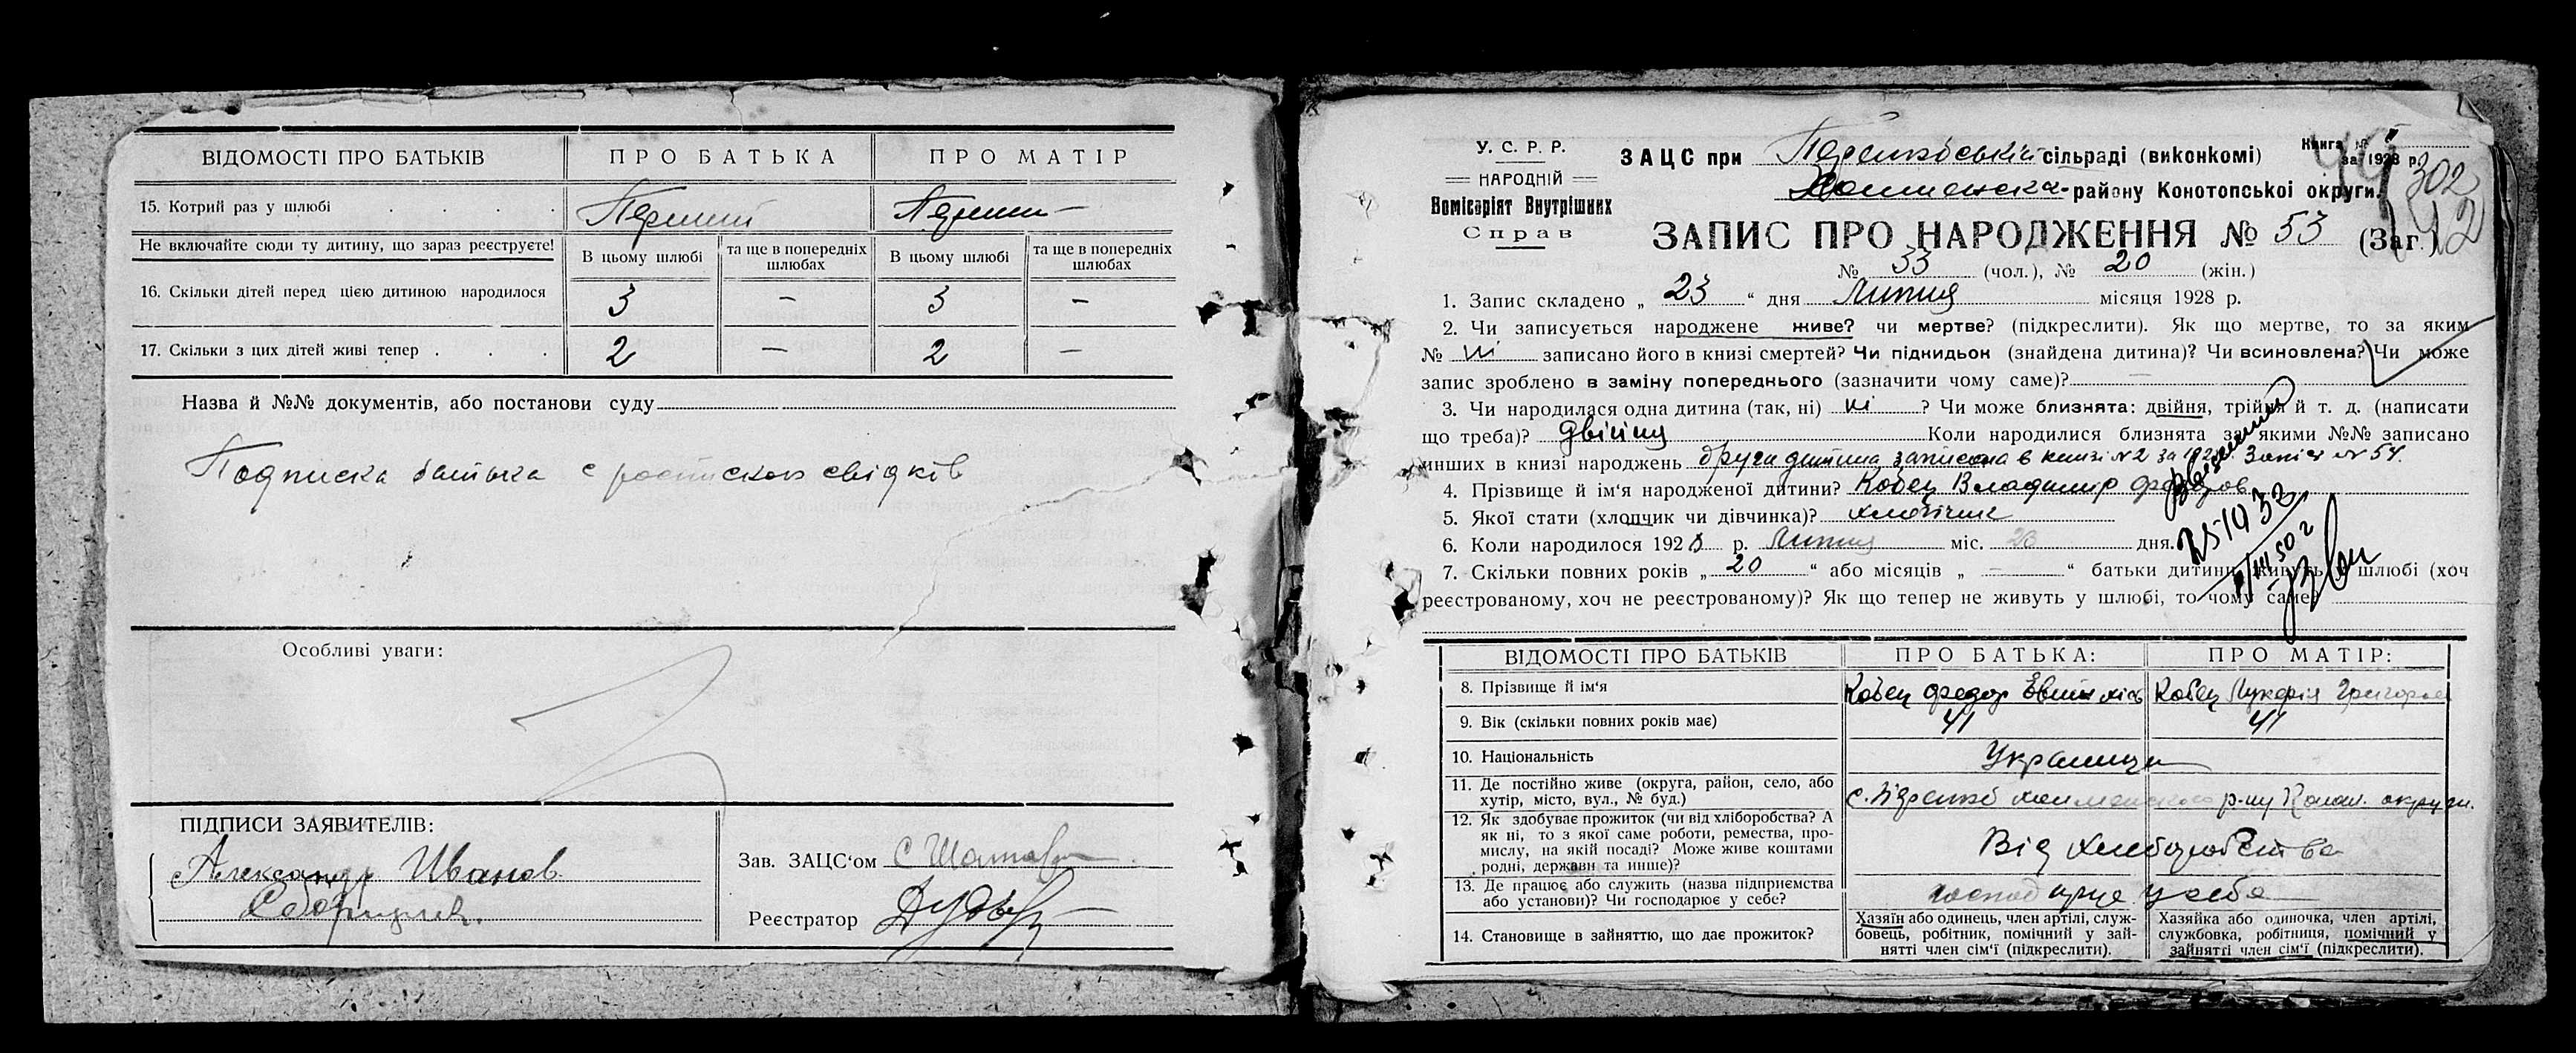 ВІДОМОСТІ ПРО БАТЬКІВ ПРО БАТЬКА ПРО МАТІР
15. Котрий раз у шлюбі Перший Перши
Не включайте сюди ту дитину, що зараз реєструєте! В цьому шлюбі та ще в попередніх шлюбах В цьому шлюбі та ще в попередніх шлюбах
16. Скільки дітей перед цією дитиною народилося 3 — 3 —
17. Скільки з цих дітей живі тепер 2 — 2 —
Назва й №№ документів, або постанови суду
Подписка батька с роспискою свідків
Особливі уваги:
ПІДПИСИ ЗАЯВИТЕЛІВ:
Александр Иванов
Зав. ЗАЦС‘ом
Реєстратор
У. С. Р. Р.
НАРОДНІЙ
Комісаріят Внутрішних
Справ
ЗАЦС при сільраді (виконкомі)
району Конотопської округи.
Книга №
за 1928 р.
302
12
ЗАПИС ПРО НАРОДЖЕННЯ № 53 (Заг.)
№ 33 (чол.), № 20 (жін.)
1. Запис складено „ 23 “ дня Липня місяця 1928 р.
2. Чи записується народжене живе? чи мертве? (підкреслити). Як що мертве, то за яким
№ ні записано його в книзі смертей? Чи піднидьок (знайдена дитина)? Чи всиновлена? Чи може
запис зроблено в заміну попереднього (зазначити чому саме)? —
3. Чи народилася одна дитина (так, ні) ні ? Чи може близнята: двійня, трійня й т. д. (написати
що треба)? двійня Коли народилися близнята за якими №№ записано
инших в книзі народжень друга дитина записана в книзі № 2 за 192 Запис № 54.
4. Прізвище й ім‘я народженої дитини? Кобец Владимир
5. Якої стати (хлопчик чи дівчинка)? хлопчик
6. Коли народилося 1928 р. Липня міс. 20 дня.
7. Скільки повних років „ 20 “ або місяців „ — “ батьки дитини живуть у шлюбі (хоч
реєстрованому, хоч не реєстрованому)? Як що тепер не живуть у шлюбі, то чому саме?
ВІДОМОСТІ ПРО БАТЬКІВ ПРО БАТЬКА: ПРО МАТІР:
8. Прізвище й ім‘я Кобец Федор Кобец Лукерія Григорьев
9. Вік (скільки повних років має) 41 41
10. Національність Украинци
11. Де постійно живе (округа, район, село, або
хутір, місто, вул., № буд.) р-ну округи.
12. Як здобуває прожиток (чи від хліборобства? А
як ні, то з якої саме роботи, ремества, про-
мислу, на якій посаді? Може живе коштами
родні, держави та инше)? Від хлеборобства
13. Де працює або служить (назва підприємства
або установи)? Чи господарює у себе? у себе
14. Становище в зайняттю, що дає прожиток?
Хазяїн або одинець, член артілі, служ-
бовець, робітник, помічний у зай-
нятті член сім‘ї (підкреслити).
Хазяйка або одиночка, член артілі,
службовка, робітниця, помічний у
зайнятті член сім‘ї (підкреслити).